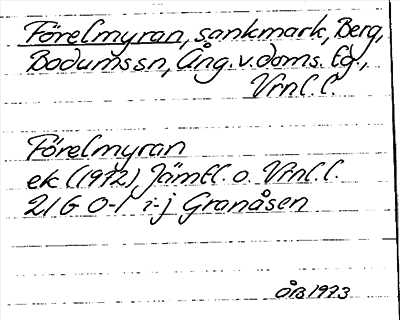 Förelmyran, sankmark, Berg,
Bodumssn, Ång. v. doms. lg.,
Vrnl. l.
Förelmyran
ek (1972), Jämtl. o. Vrnl. l.
21G 0-1 i-j Granåsen
ÖB 1973